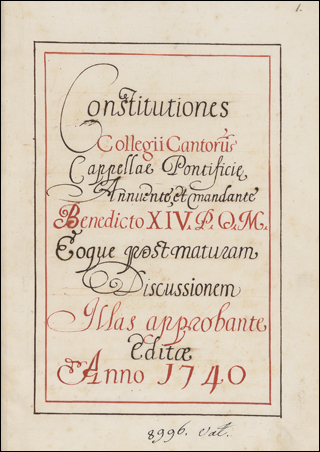 1.
Constitutiones
Collegii Cantorũ
Cappellae Pontificię
Annuente, et mandante
Benedicto XIV. P. O. M.
Eoque post maturam
Discussionem
Illas approbante
Editæ
Anno 1740
8996. Vat.